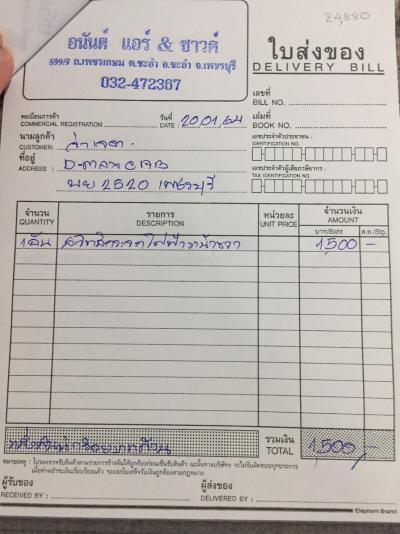 24,880
อนันต์ แอร์ & ซาวด์
699/9 ถ.เพชรเกษม ต.ชะอำ อ.ชะอำ จ.เพชรบุรี
032-472367
ใบส่งของ
DELIVERY BILL
เลขที่
BILL NO.
ทะเบียนการค้า
COMMERCIAL REGISTRATION
วันที่
DATE : 20,01,64
เล่มที่
BOOK NO.
นามลูกค้า
CUSTOMER:
เลขประจำตัวประชาชน :
IDENTIFICATION NO.
ที่อยู่
ADDRESS :
เลขประจำตัวผู้เสียภาษีอากร :
TAX IDENTIFICATION NO.
2520 เพชรบุรี
จำนวน
QUANTITY
รายการ
DESCRIPTION
หน่วยละ
UNIT PRICE
จำนวนเงิน
AMOUNT
บาท/Baht
ส.ต./Stg.
1 อัน
1,500 –
รวมเงิน
TOTAL
1,500/-
หมายเหตุ : โปรดตรวจรับสินค้าตามรายการข้างต้นให้ถูกต้องก่อนเซ็นรับสินค้า ฉะนั้นทางบริษัทฯ จะไม่รับผิดชอบทุกประการ
เมื่อท่านชำระเงินเรียบร้อยแล้ว จะออกใบเสร็จรับเงินถูกต้องตามกฎหมาย
ผู้รับของ
RECEIVED BY :
ผู้ส่งของ
DELIVERED BY :
Elephant Brand